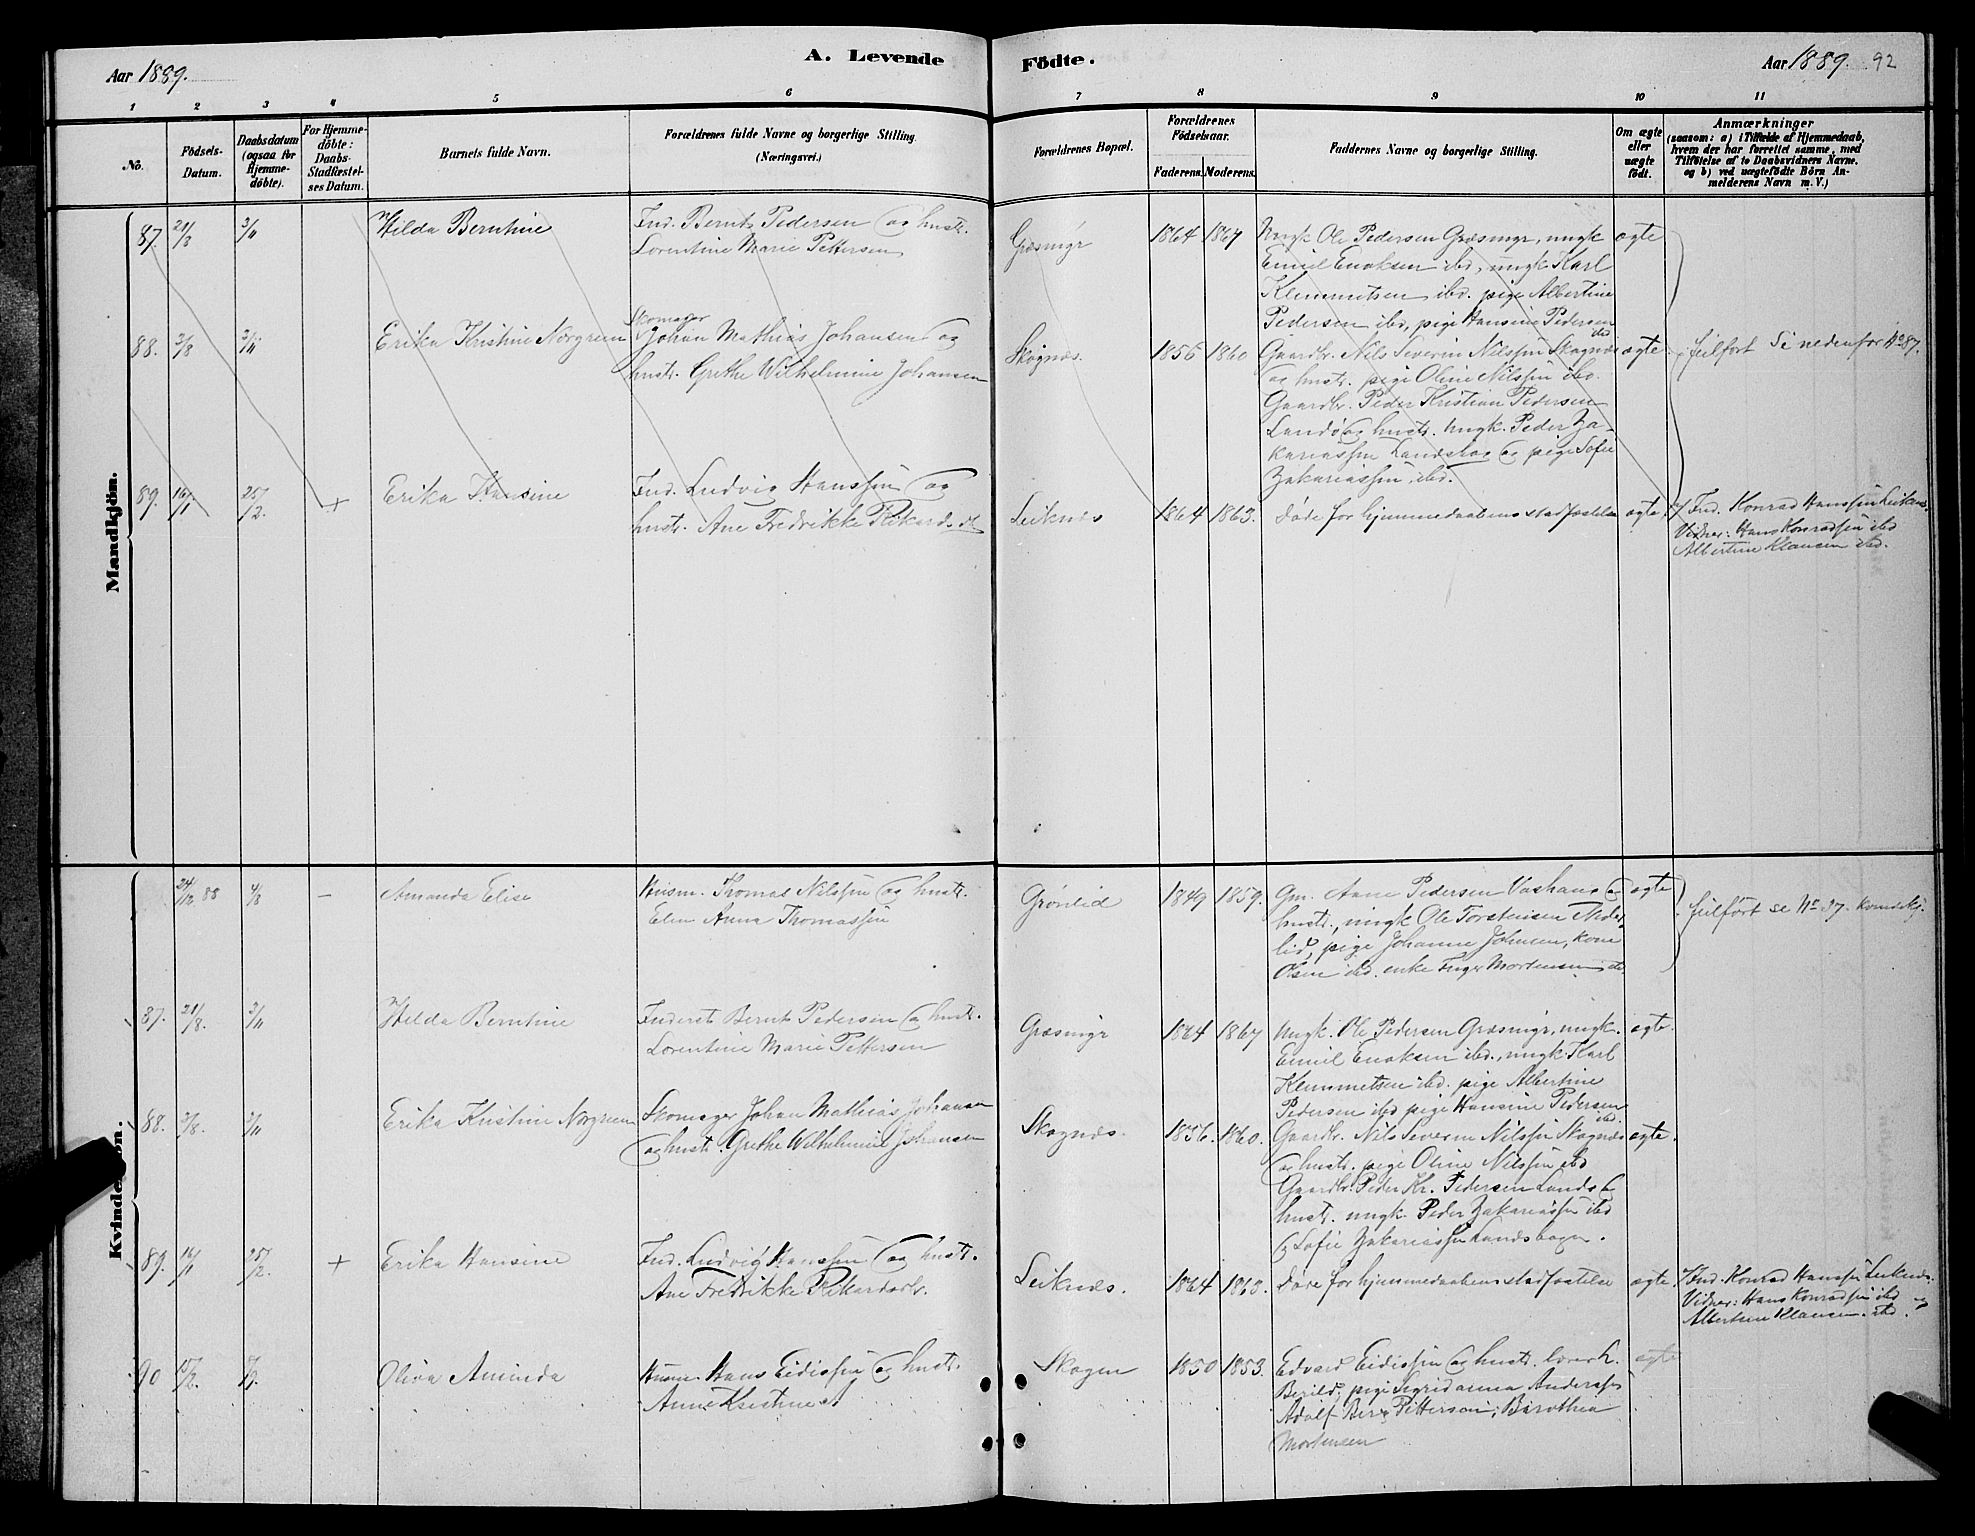 Aar 1889.
A. Levende Födte.
Aar 1889. 92
1 2 3 4 5 6 7 8 9 10 11
No.
Födsels-
Datum.
Daabsdatum
(ogsaa for
Hjemme-
döbte).
For Hjemme-
döbte:
Daabs-
Stadfæstel-
ses Datum.
Barnets fulde Navn.
Forældrenes fulde Navne og borgerlige Stilling.
(Næringsvei.)
Forældrenes Bopæl.
Forældrenes
Födselsaar.
Faderens. Moderens.
Faddernes Navne og borgerlige Stilling.
Om ægte
eller
uægte
födt.
Anmærkninger
(saasom: a) i Tilfælde af Hjemmedaab,
hvem der har forrettet samme, med
Tilföielse af to Daabsvidners Navne.
og b) ved uægtefödte Börn An-
melderens Navn m. V.)
Mandkjön.
87. 21/8 3/11 Hilda Berntine
Ind. Bernt Pedersen og hustr.
Lorentine Marie Pettersen
Græsmyr 1864 1867
Ungk Ole Pedersen Græsmyr, ungk
Emil Enoksen ibd, ungk Karl
Klemmetsen ibd. pige Albertine
Pedersen ibd, pige Hansine Pedersen
ibd
ægte
88. 3/8 3/11 Erika Kristine Norgreen
Skomager
Johan Mathias Johansen og
hustr. Grethe Wilhelmine Johansen
Skognæs. 1856 1860
Gaardbr. Nils Severin Nilssen Skognæs
og hustr. pige Oline Nilssen ibd.
Gaardbr. Peder Kristian Pedersen
Landsö og hustr. ungk. Peder Za-
kariassen Landshag og pige Sofie
Zakariassen ibd.
ægte.
feilfört Se nedenfor No 87.
89. 16/1 25/2. + Erika Hansine
Ind. Ludvig Hanssen og
hustr. Ane Fredrikke Rikardsdt
Leiknæs 1864 1863.
Döde for hjemmedaabens stadfæstelse
ægte
v/ Ind. Konrad Hanssen Leiknæs.
Vidner: Hans Konradsen ibd
Albertine Klausen ibd.
Kvindekjön.
24/12 88 4/8 – Amanda Elise
Husm. Thomas Nilssen og hustr.
Elen Anna Thomassen
Grönlid 1849 1859.
Gm. Aane Pedersen Vashaug og
hustr., ungk Ole Torstensen
lid, pige Johanne Johnsen, kone
Olsen ibd. enke Inger Mortensen ibd
ægte
feilfört se No 37 kvindekj.
87. 21/8. 3/11 Hilda Berntine
Inderst Bernt Pedersen og hustr.
Lorentine Marie Pettersen
Græsmyr 1864 1867
Ungk. Ole Pedersen Græsmyr, ungk.
Emil Enoksen ibd., ungk Karl
Klemmetsen ibd. pige Albertine
Pedersen ibd pige Hansine Pedersen
ibd.
ægte.
88. 3/8. 3/11 Erika Kristine Norgreen
Skomager Johan Mathias Johansen
og hustr. Grethe Wilhelmine Johansen
Skognæs. 1856. 1860.
Gaardbr. Nils Severin Nilssen Skognæs
og hustr. pige Oline Nilssen ibd
Gaardbr. Peder Kr. Pedersen Landsö
hustr. ungk. Peder Zakariassen ibd
og Sofie Zakariassen Landshagen.
ægte.
89. 16/1 25/2. + Erika Hansine
Ind. Ludvig Hanssen og hustr.
Ane Fredrikke Rikardsdtr.
Leiknæs. 1864 1863.
Döde for hjemmedaabens stadfæstelse
ægte.
v/ Ind. Konrad Hanssen Leiknæs.
Vidner: Hans Konradsen ibd og
Albertine Klausen. ibd.
90 15/2. Olava Aminda
Husm. Hans Eidissen og hustr.
Anne Kristine
Skogen 1850 1853.
Edvard Eidissen og hustr.
pige Sigridanna Anderssen
Adolf Pettersen, Dorothea
Mortensen
ægte